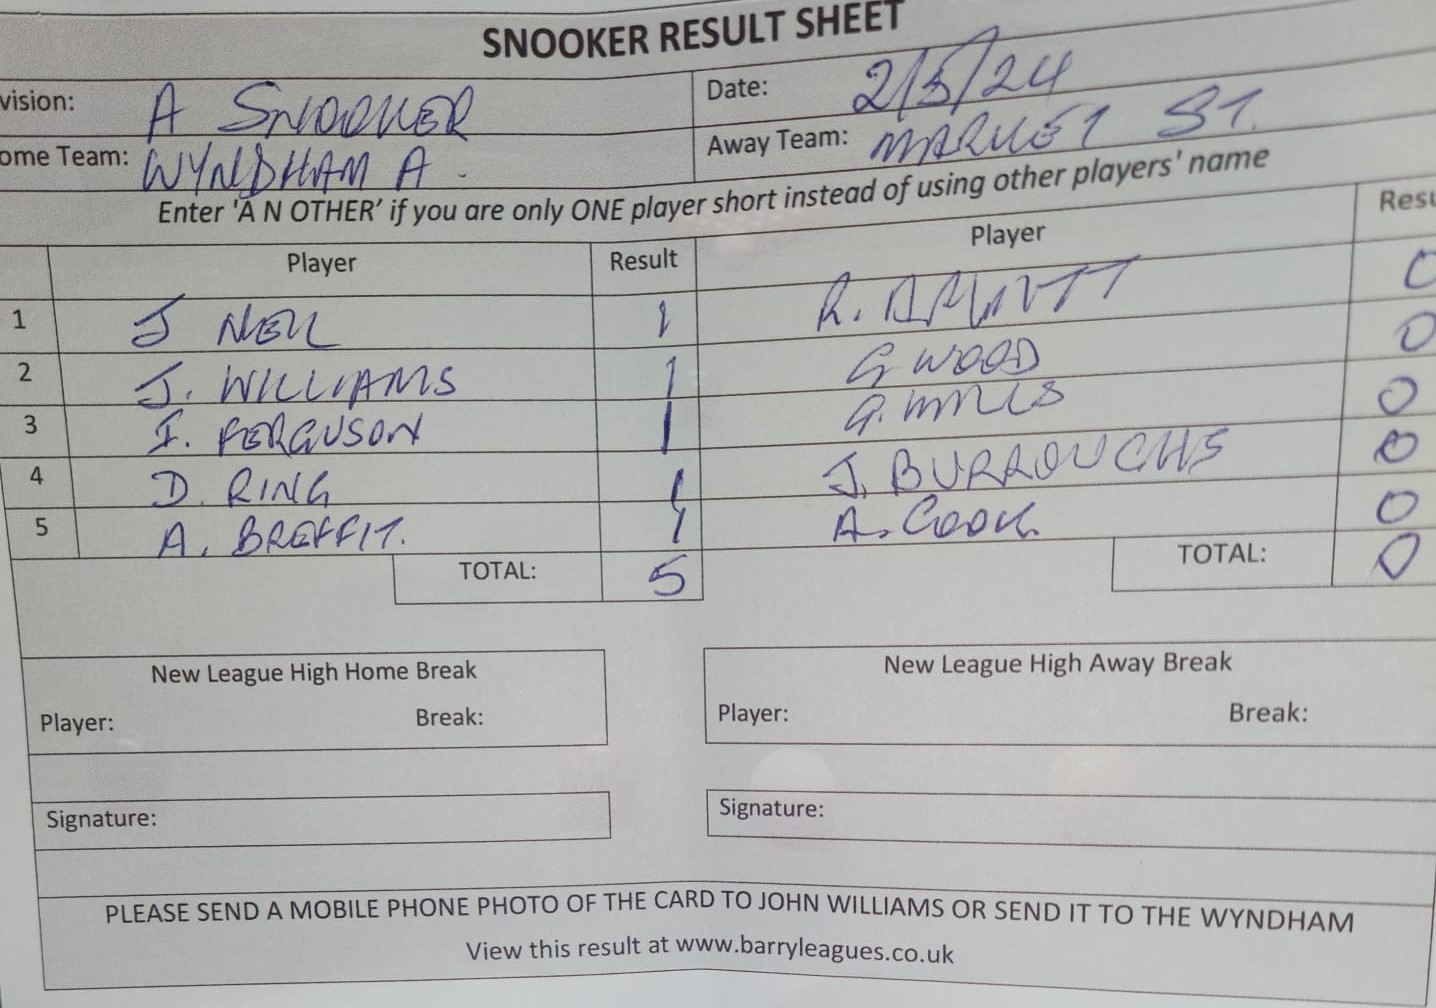 SNOOKER RESULT SHEET
vision: A SNOOKER Date: 2/5/24
ome Team: WYNDHAM A. Away Team: MARKET ST.
Enter 'A N OTHER' if you are only ONE player short instead of using other players' name
Player Result Player Resu
1 J NEIL 1 R. 0
2 J. WILLIAMS 1 G WOOD 0
3 I. FERGUSON 1 G. 0
4 D. RING 1 J. BURROUGHS 0
5 A. BREFFIT. 1 A. COOK 0
TOTAL: 5 TOTAL: 0
New League High Home Break New League High Away Break
Player: Break: Player: Break:
Signature: Signature:
PLEASE SEND A MOBILE PHONE PHOTO OF THE CARD TO JOHN WILLIAMS OR SEND IT TO THE WYNDHAM
View this result at www.barryleagues.co.uk